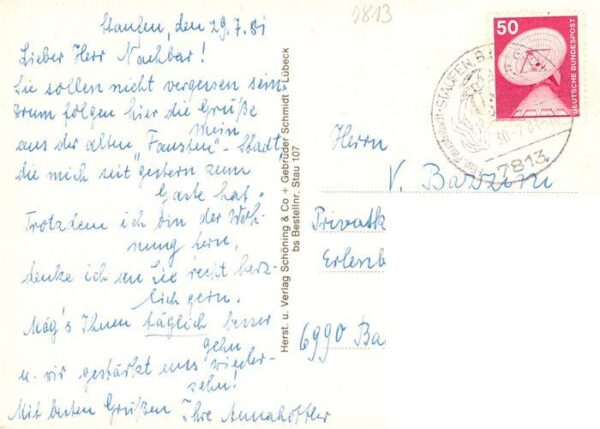 Staufen, den 29.7.81
Lieber Herr Nachbar!
Sie sollen nicht vergessen sein
Drum folgen hier die Grüße mein
aus der alten "Fausten"-Stadt,
die mich seit gestern zum
Gaste hat.
Trotzdem ich bin der Woh-
nung fern,
denke ich an Sie recht herz-
lich gern.
Mög's Ihnen täglich besser
gehn
u. wir gestärkt uns wieder-
sehn!
Mit besten Grüßen Ihre
Herst. u. Verlag Schöning & Co + Gebrüder Schmidt - Lübeck
bs Bestellnr. Stau 107
1813
50
DEUTSCHE BUNDESPOST
STAUFEN
7813
Herrn
V.
Privatk
Erlenb
6990 Ba